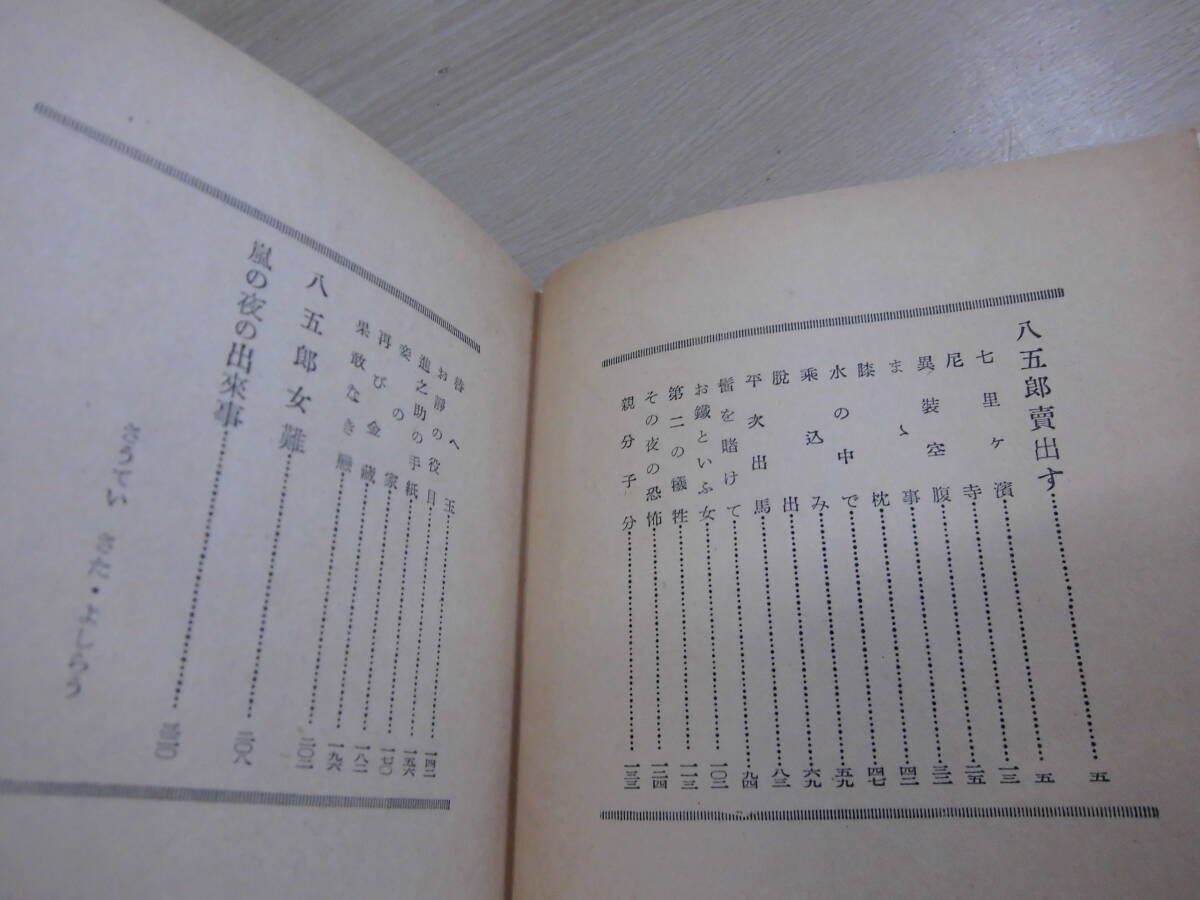 八五郎賣出す……五
七里ヶ濱……五
尼寺……一三
異裝空腹……二五
まゝ事……三二
膝枕……四二
水の中で……四七
乘込み……五九
脱出……六九
平次出馬……八三
髷を賭けて……九四
お鐵といふ女……一〇二
第二の犧牲……一一三
その夜の恐怖……一二四
親分子分……一三三
替へ玉……一四二
お靜の役目……一五六
進之助の手紙……一七〇
妾の家……一八二
再び金藏……一九六
果敢なき戀……二〇二
八五郎女難……二〇八
嵐の夜の出來事……
さうてい きた・よしらう